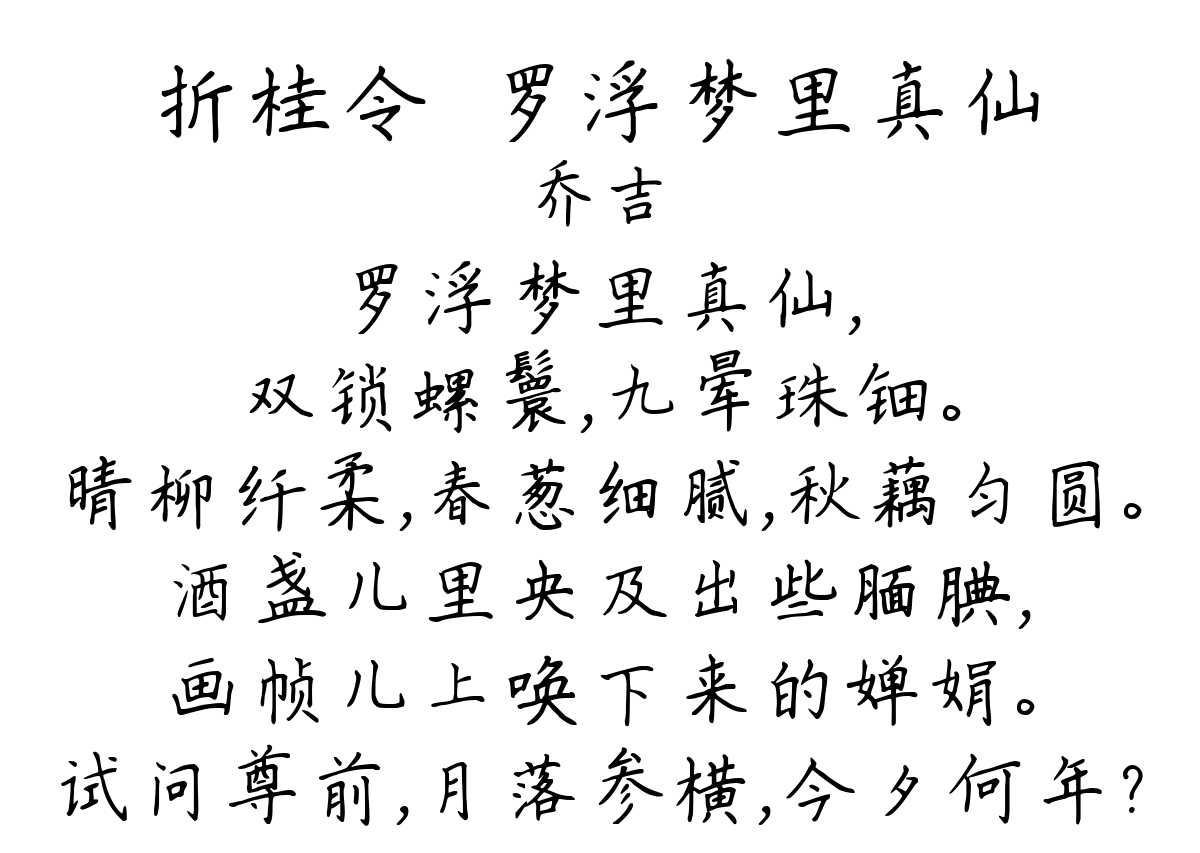 折桂令 罗浮梦里真仙
乔吉
罗浮梦里真仙,
双锁螺鬟,九晕珠钿。
晴柳纤柔,春葱细腻,秋藕匀圆。
酒盏儿里央及出些腼腆,
画帧儿上唤下来的婵娟。
试问尊前,月落参横,今夕何年?